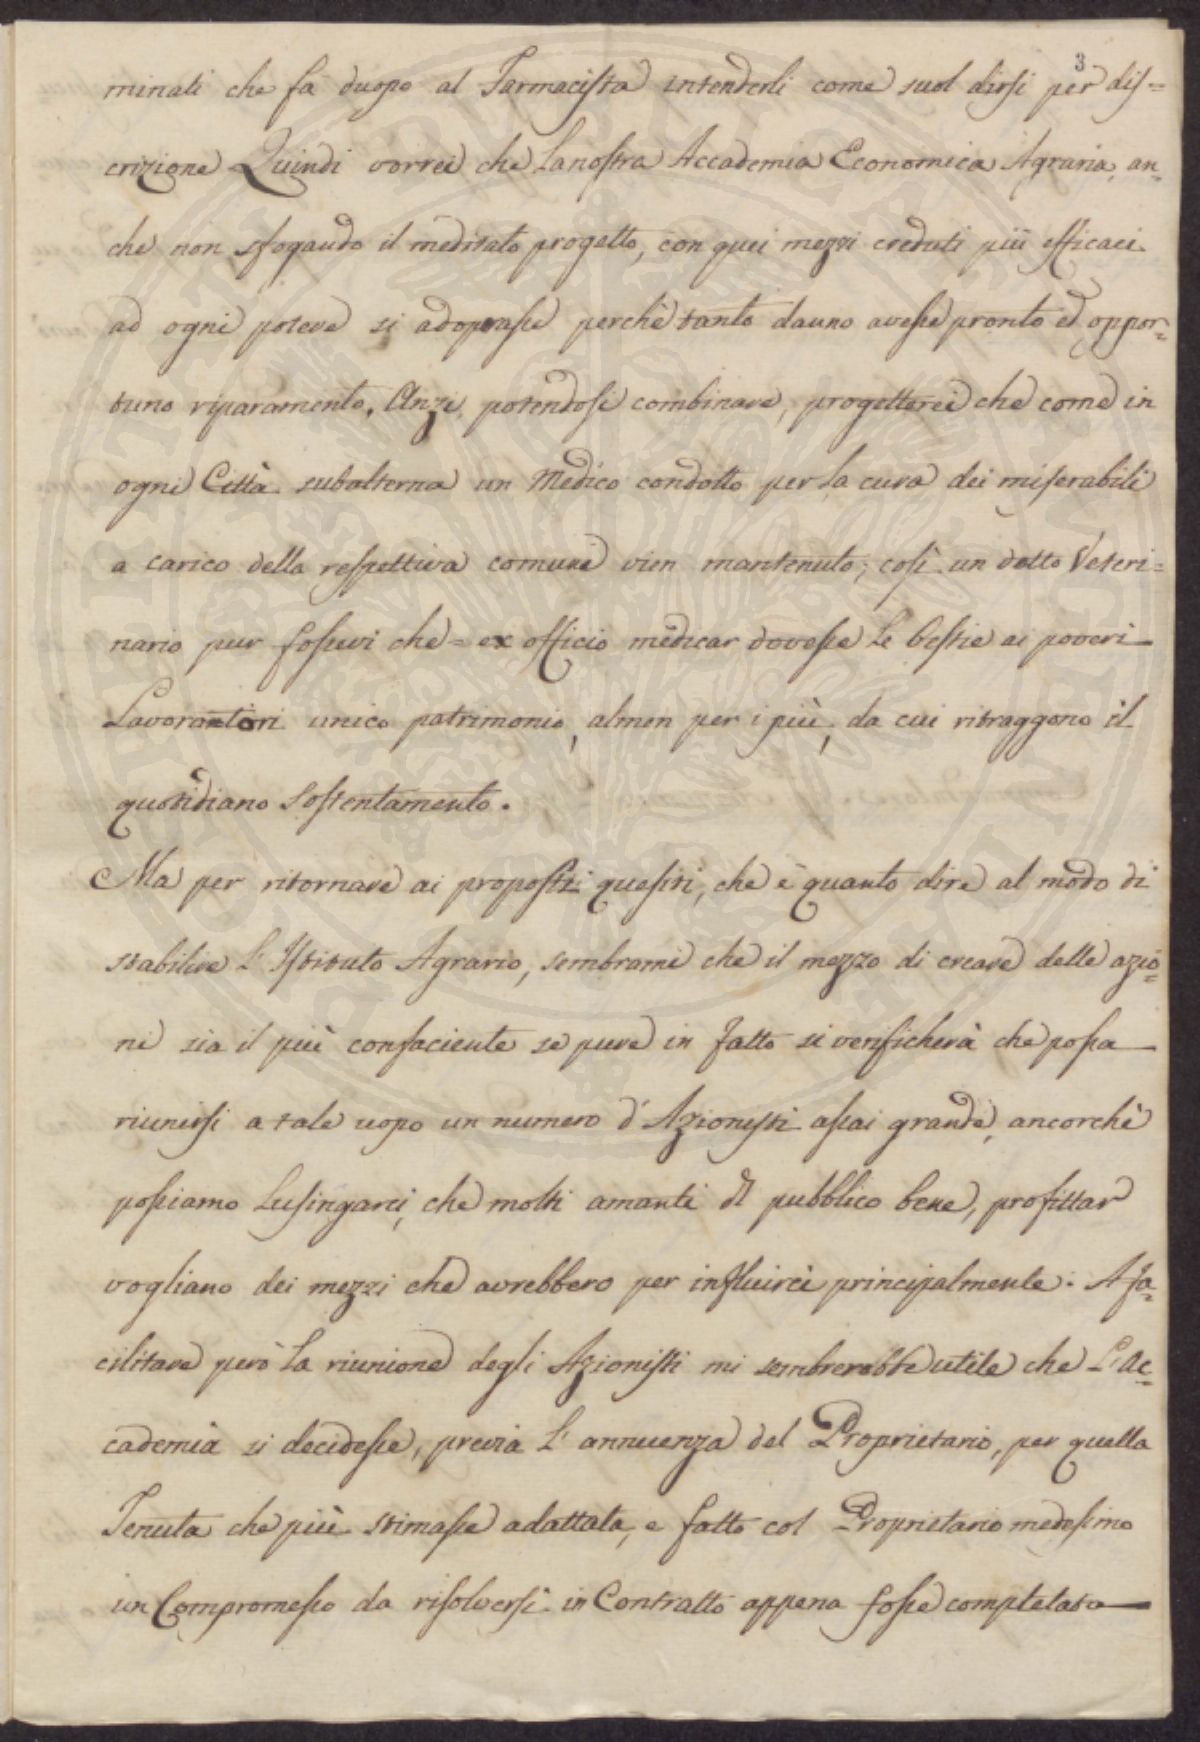 3
minati che fa duopo al Farmacista intenderli come suol dirsi per dis=
crizione Quindi vorrei che la nostra Accademia Economica Agraria, an=
che non sfogando il meditato progetto, con quei mezzi creduti più efficaci
ad ogni potere si adoprasse perchè tanto danno avesse pronto ed oppor=
tuno riparamento. Anzi, potendosi combinare, progetterei che come in
ogni Città subalterna un Medico condotto per la cura dei miserabili
a carico della respettiva comune vien mantenuto; così un dotto Veteri=
nario pur fossevi che = ex officio medicar dovesse le bestie ai poveri
Lavorantori unico patrimonio, almen per i più, da cui ritraggono il
quotidiano sostentamento.
Ma per ritornare ai proposti quesiti, che è quanto dire al modo di
stabilire l'Istituto Agrario, sembrami che il mezzo di creare delle azio=
ni sia il più confaciente se pure in fatto si verificherà che possa
riunirsi a tale uopo un numero d'Azionisti assai grande, ancorchè
possiamo lusingarci, che molti amanti dl pubblico bene, profittar
vogliano dei mezzi che avrebbero per influirci principalmente. A fa=
cilitare però la riunione degli Azionisti mi sembrerebbe utile che l'Ac=
cademia si decidesse, previa l'annuenza del Proprietario, per quella
Tenuta che più stimasse adattata, e fatto col Proprietario medesimo
un Compromesso da risolversi in Contratto appena fosse completata